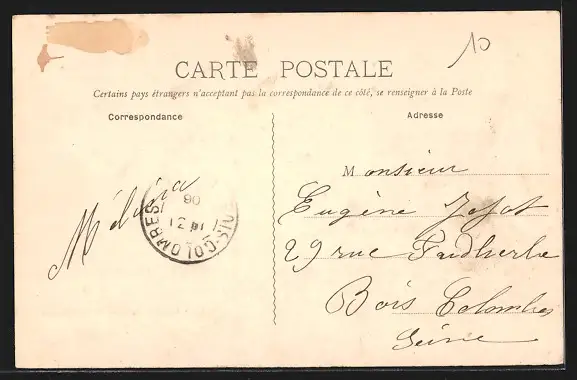 10
CARTE POSTALE
Certains pays étrangers n'acceptant pas la correspondance de ce côté, se renseigner à la Poste
Correspondance
Adresse
Monsieur
Eugène
29 rue Faidherbe
Bois Colombes
Seine
BOIS-COLOMBES